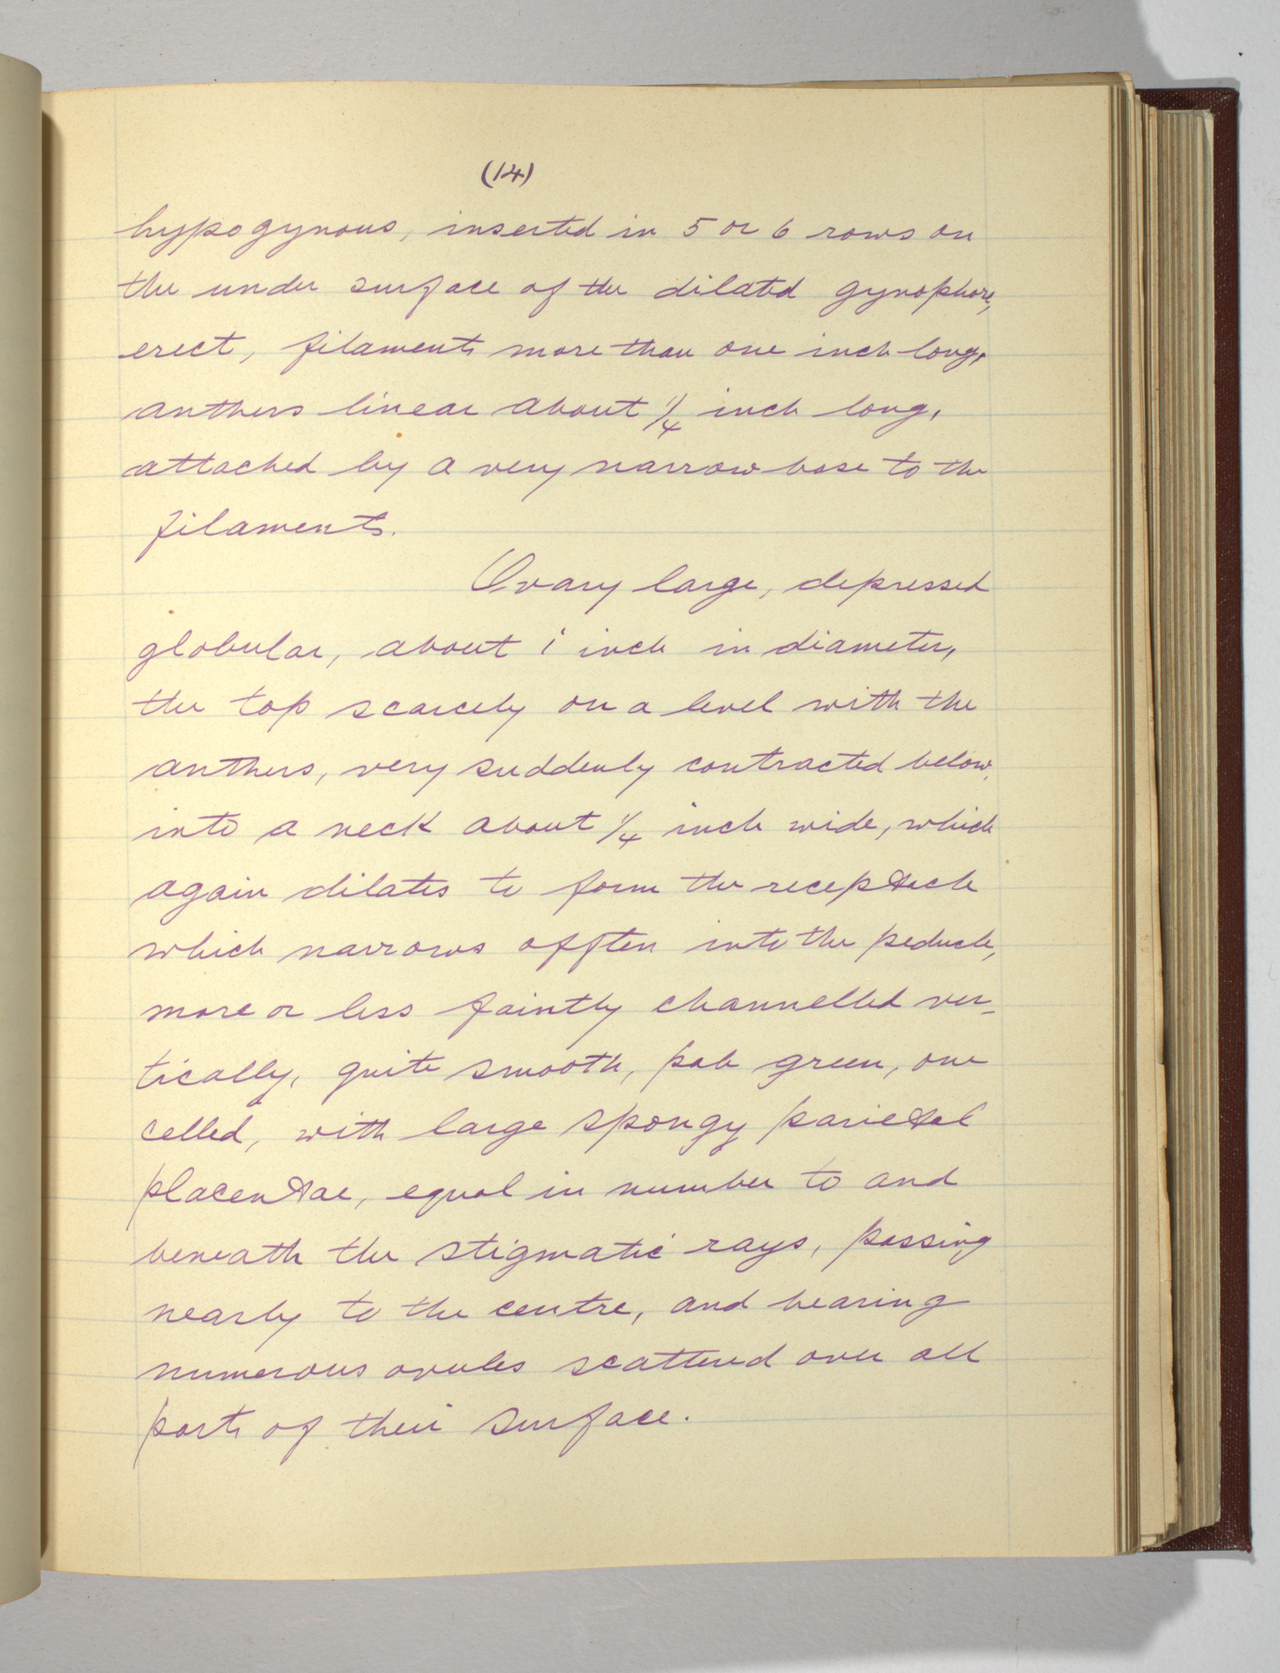 (14)
hypogynous, inserted in 5 or 6 rows on
the under surface of the dilated gynophore,
erect, filaments more than one inch long,
anthers linear about 1/4 inch long,
attached by a very narrow base to the
filaments.
Ovary large, depressed
globular, about 1 inch in diameter,
the top scarcely on a level with the
anthers, very suddenly contracted below,
into a neck about 1/4 inch wide, which
again dilates to form the receptacle
which narrows off into the peduncle,
more or less faintly channelled ver-
tically, quite smooth, pale green, one
celled, with large spongy parietal
placentae, equal in number to and
beneath the stigmatic rays, passing
nearly to the centre, and bearing
numerous ovules scattered over all
parts of their surface.